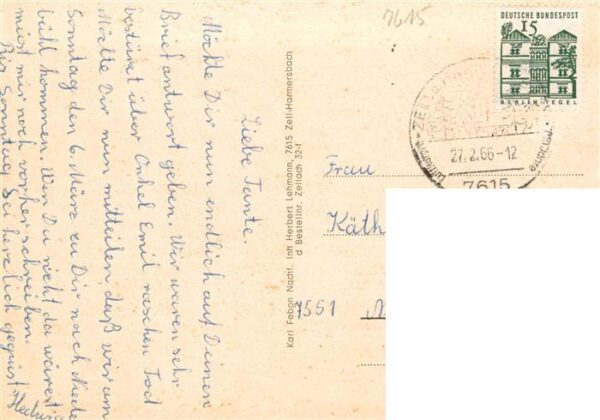 Liebe Tante.
Möchte Dir nun endlich auf Deinen
Briefantwort geben. Wir waren sehr
bestürzt über Onkel Emil raschen Tod
Möchte Dir nun mitteilen, daß wir am
Sonntag den 6. März zu Dir nach Nieder
bühl kommen. Wen Du nicht da wärest
müßt mir noch vorher schreiben.
Bis Sonntag Sei herzlich gegrüst
Hedwig
Karl Febon Nachf. Inh Herbert Lehmann, 7615 Zell-Harmersbach
d Bestellnr. Zellach 32 f
7615
DEUTSCHE BUNDESPOST
15
BERLIN-TEGEL
27.2.66-12
7615
Frau
Käth
7551